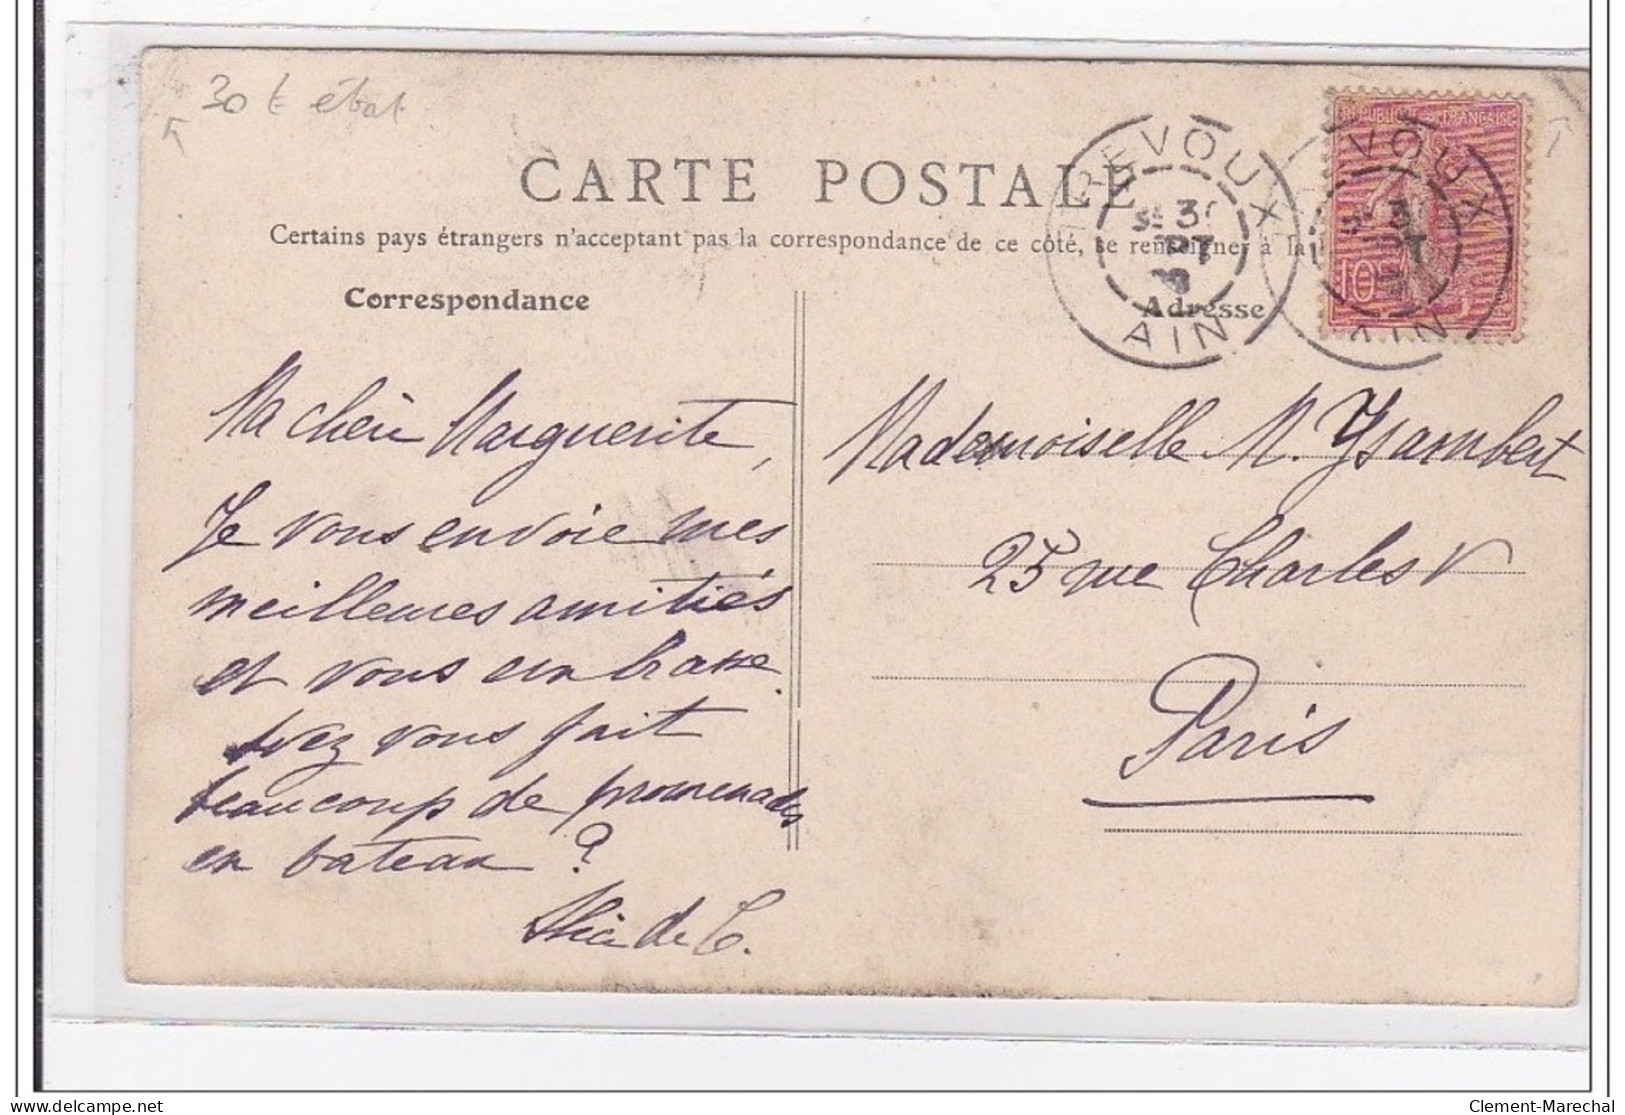 30 t état
CARTE POSTALE
Certains pays étrangers n'acceptant pas la correspondance de ce côté, se renseigner à la
Correspondance
Adresse
TREVOUX
AIN
VOUX
AIN
REPUBLIQUE FRANÇAISE
10
Ma chère Marguerite,
Je vous envoie mes
meilleures amitiés
et vous embrasse.
Avez vous fait
beaucoup de promenades
en bateau ?
de C.
Mademoiselle M. Ysambert
25 rue Charles V
Paris
delcampe.net
Clement-Marechal